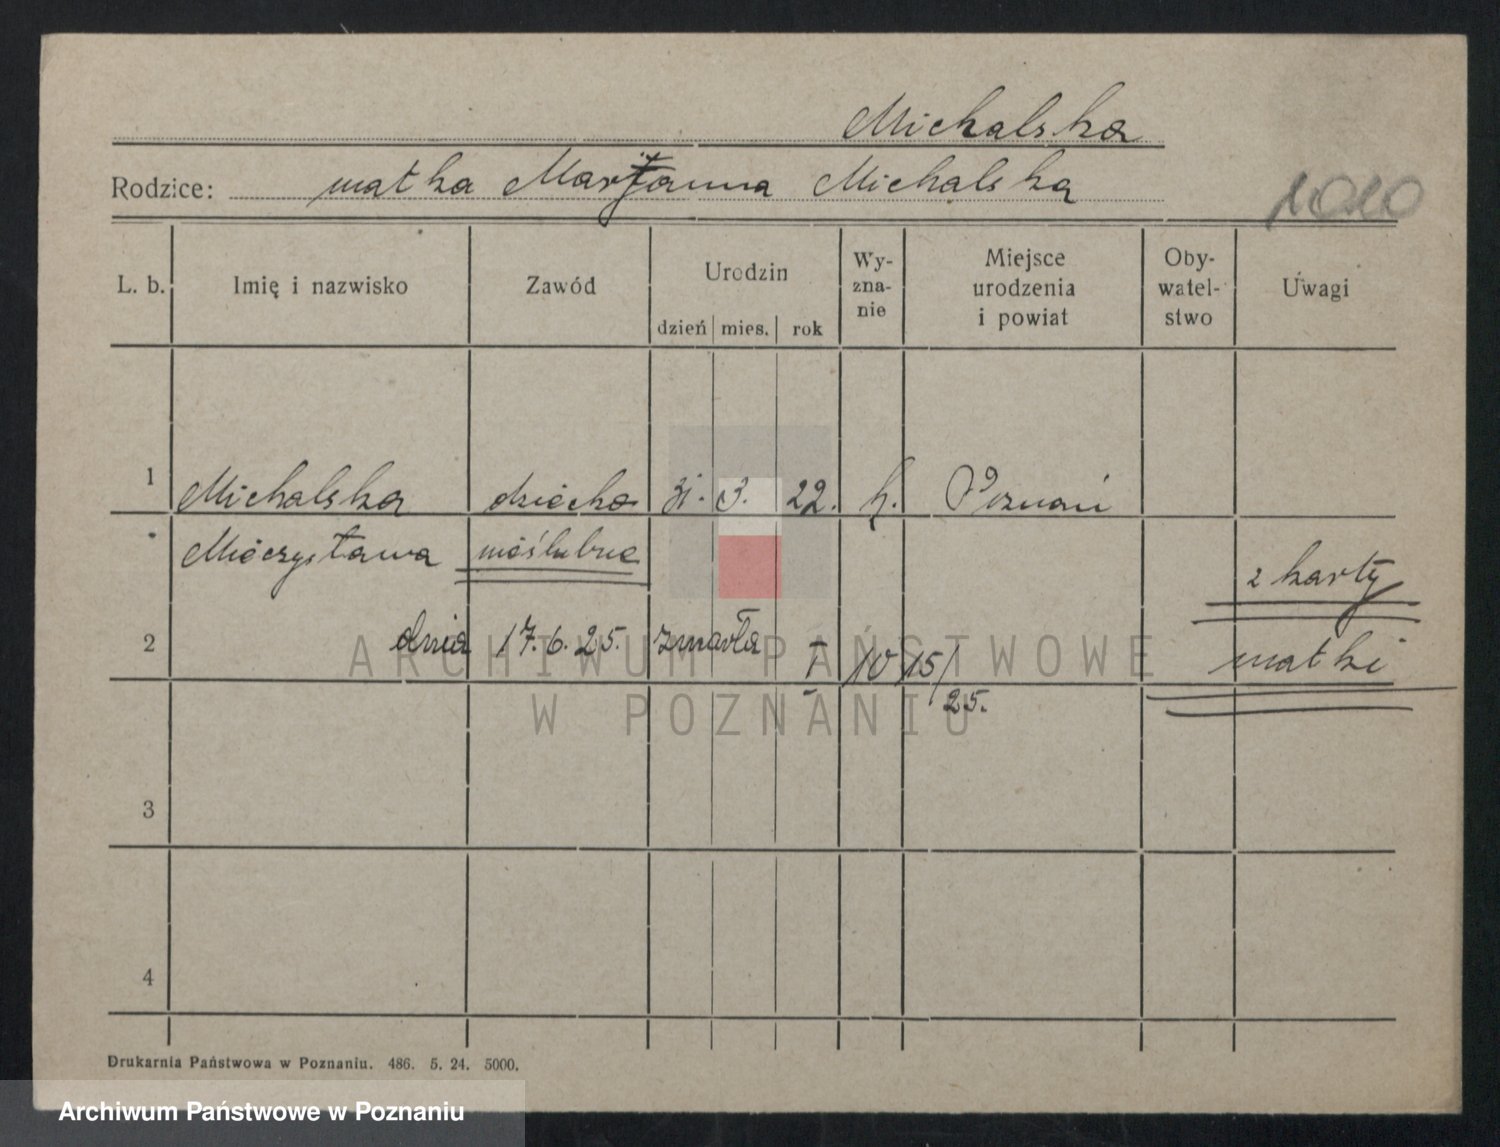 Michalska
Rodzice: matka Marjanna Michalska
1010
L. b. Imię i nazwisko Zawód Urodzin dzień mies. rok Wy-zna-nie Miejsce urodzenia i powiat Oby-watel-stwo Uwagi
1 Michalska dziecko 31. 3. 22. k. Poznań
Mieczysława nieślubne
z karty
2 dnia 17.6.25. zmarła I 10 15/25.
matki
ARCHIWUM PAŃSTWOWE
W POZNANIU
3
4
Drukarnia Państwowa w Poznaniu. 486. 5. 24. 5000.
Archiwum Państwowe w Poznaniu